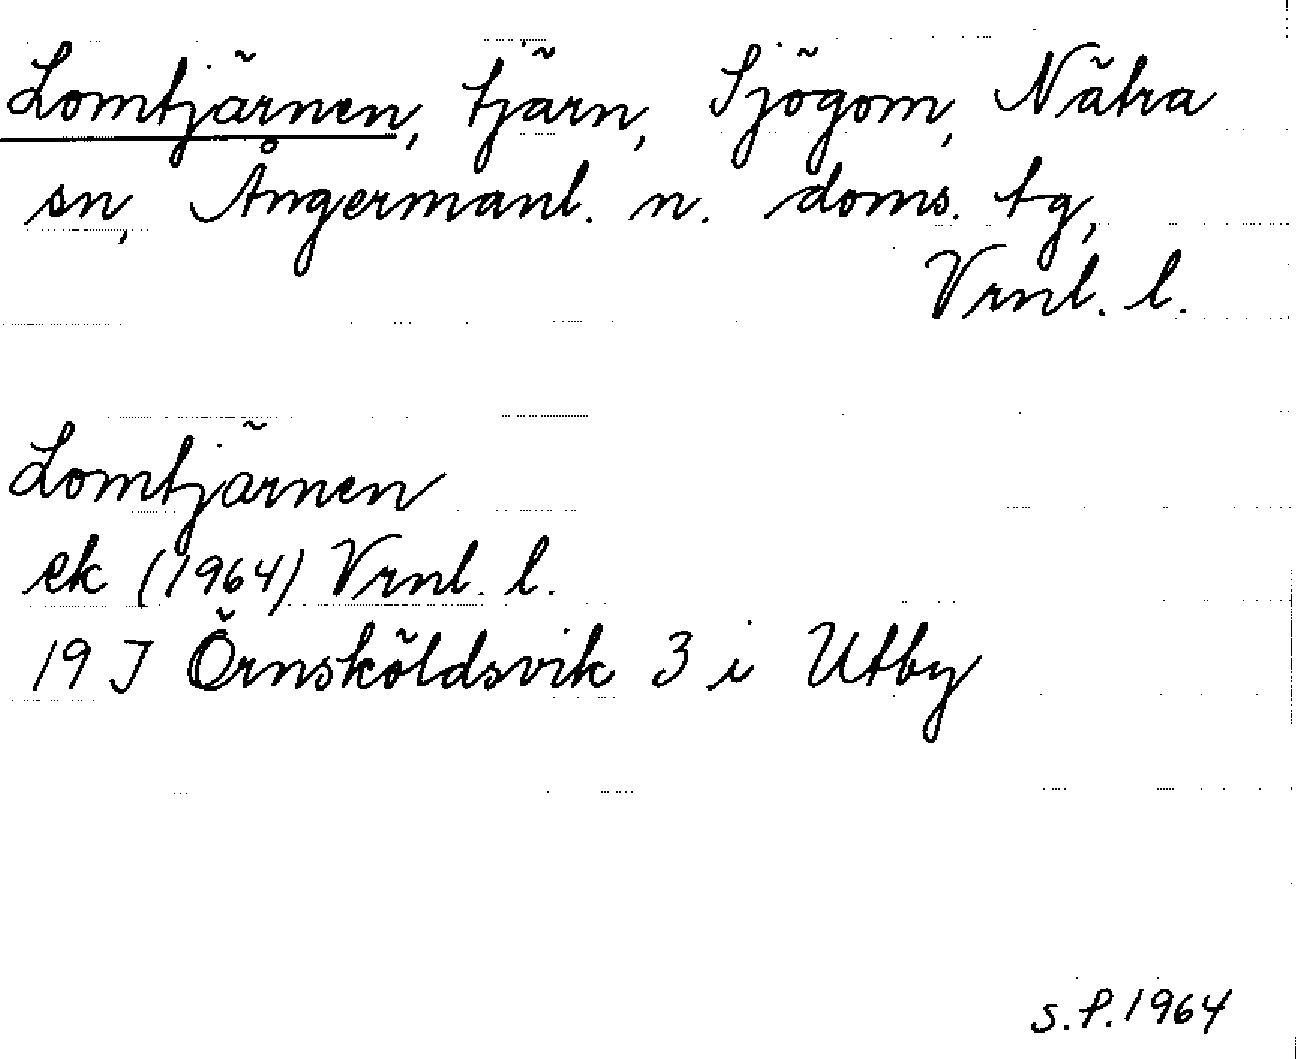 Lomtjärnen, tjärn, Sjögom, Nätra
sn, Ångermanl. n. doms. tg,
Vrnl. l.
Lomtjärnen
ek (1964) Vrnl. l.
19 J Örnsköldsvik 3 i Utby
s.P.1964